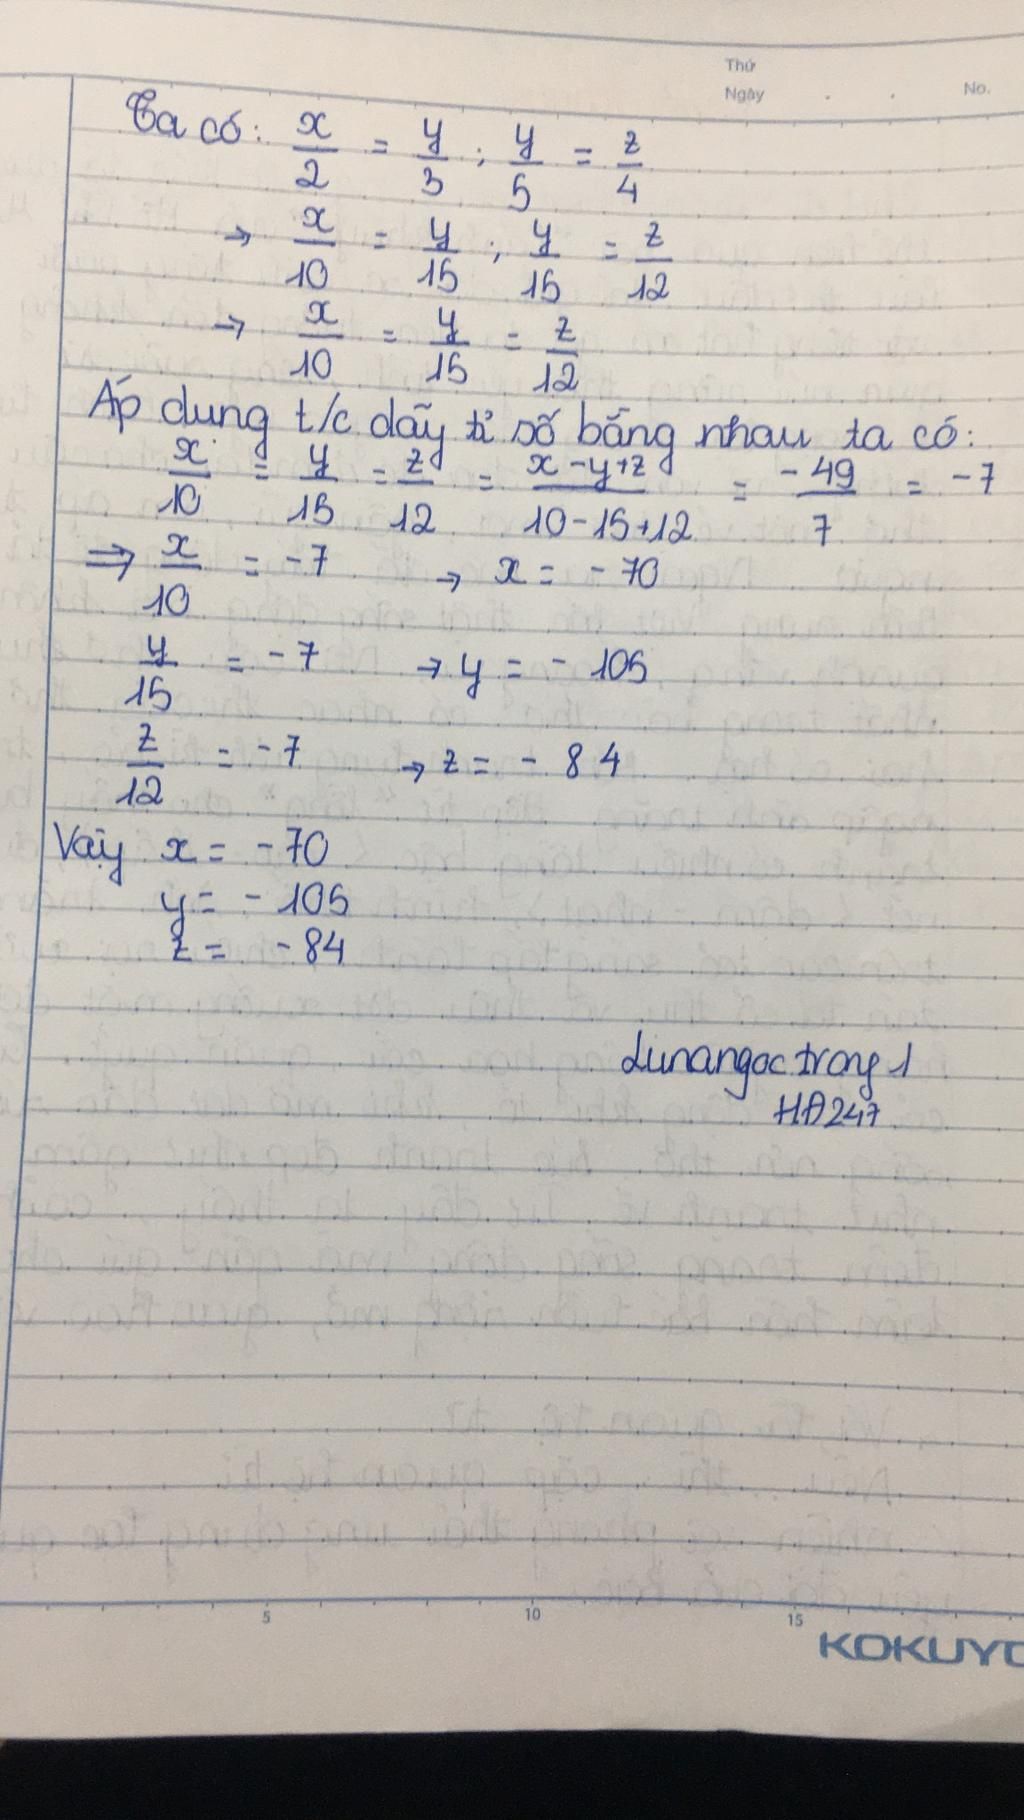 Thứ
Ngày . . No.
Ta có: x/2 = y/3 ; y/5 = z/4
→ x/10 = y/15 ; y/15 = z/12
→ x/10 = y/15 = z/12
Áp dụng t/c dãy tỉ số bằng nhau ta có:
x/10 = y/15 = z/12 = (x-y+z)/(10-15+12) = -49/7 = -7
⇒ x/10 = -7 → x = -70
y/15 = -7 → y = - 105
z/12 = -7 → z = - 84
Vậy x = -70
y = - 105
z = -84
Lunangoctrang1
HĐ247
5 10 15
KOKUYO